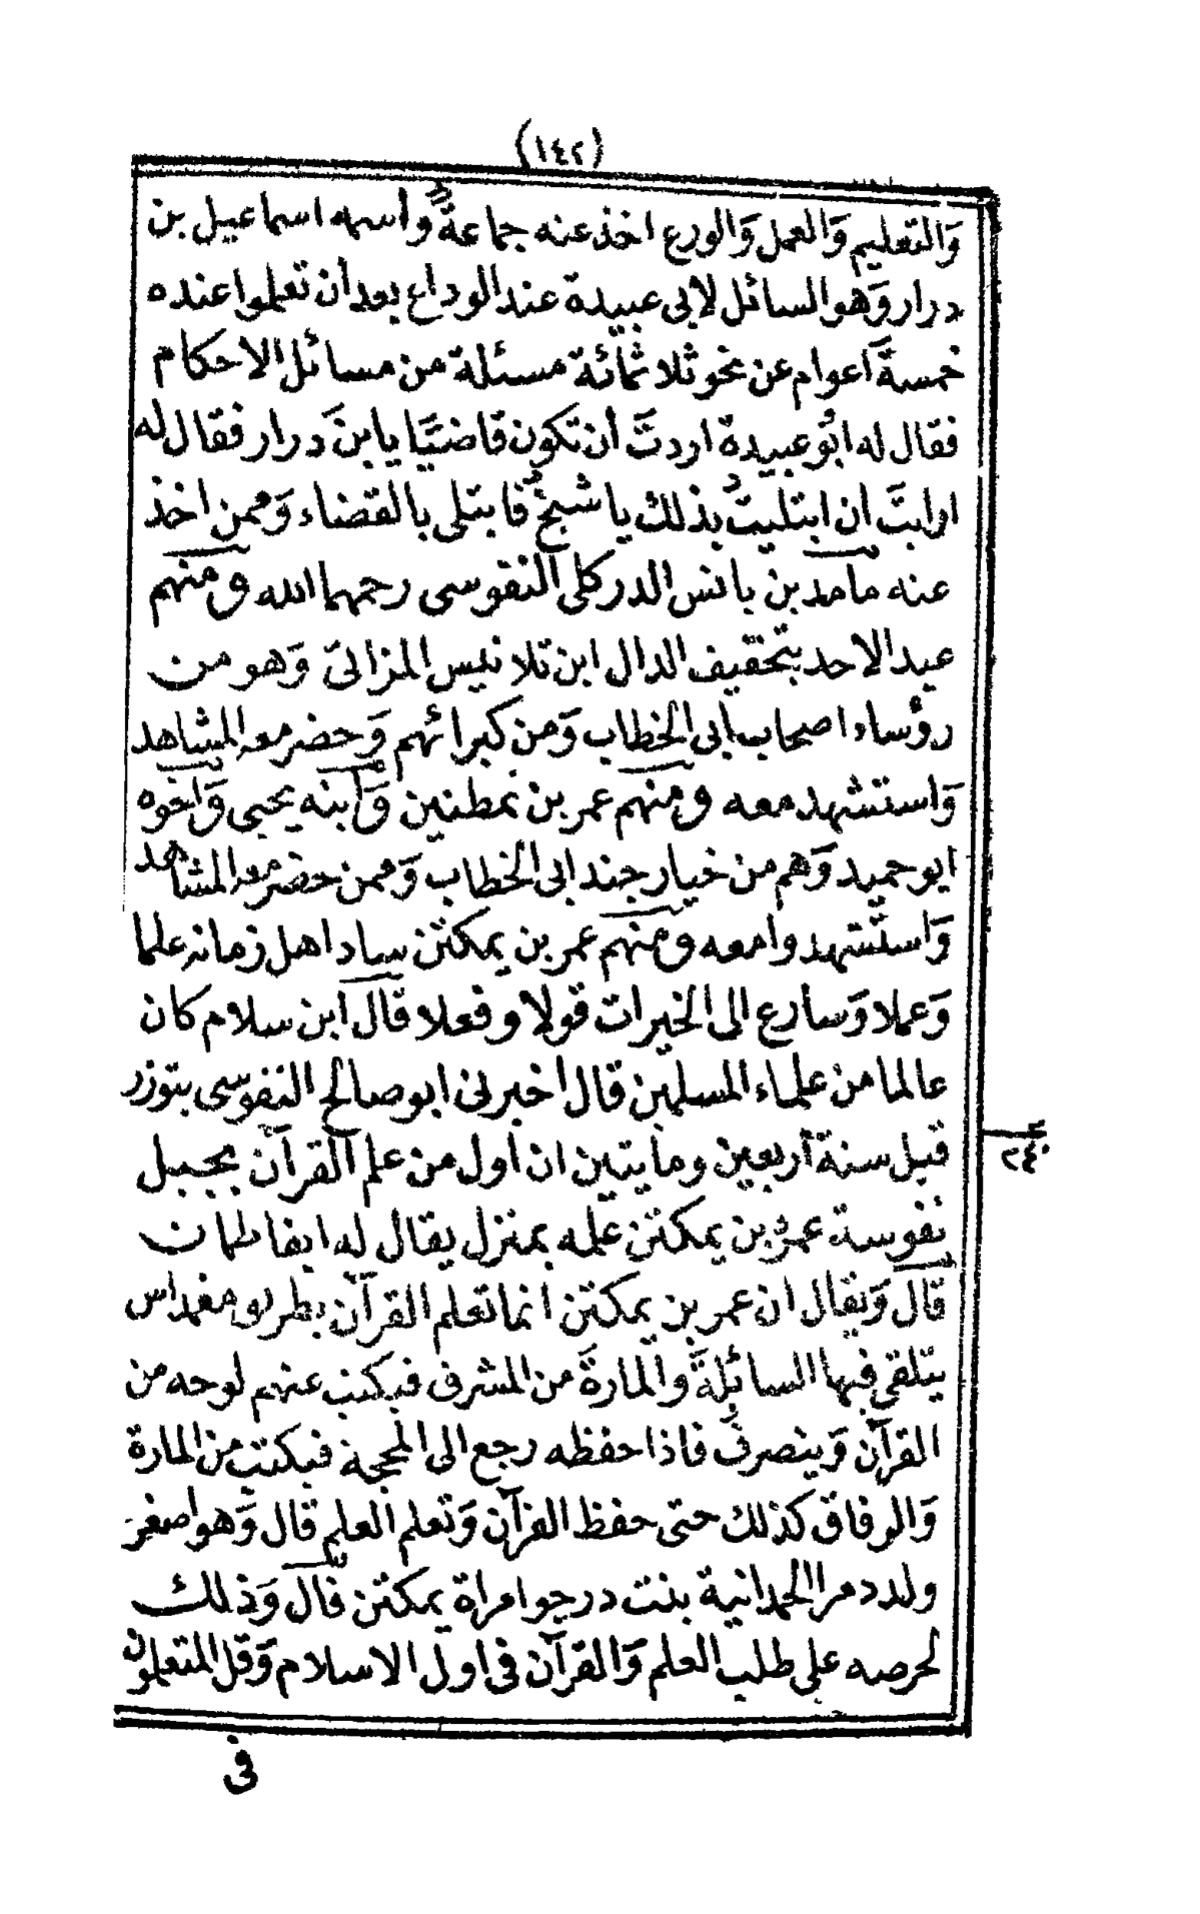 (١٤٢)
وَالتعليم وَالعمل وَالورع اخذ عنه جماعةٌ وأسمه اسماعيل بن
درار وَهو السائل لأبى عبيدة عند الوداع بعد أن تعلموا عنده
خمسةَ أعوام عن نحو ثلاثمائة مسئلة من مسائل الاحكام
فقال له ابُو عبيدة اردتَ أن تكون قاضيًا يا ابنَ درار فقال له
ارايتَ ان ابتليتُ بذلك يا شيخُ فابتلى بالقضاء وَممن اخذ
عنه مامد بن يانس الدركلى النفوسى رحمهما الله ومنهم
عبد الاحد بتخفيف الدال ابن تلانيس المزاتى وَهو من
رؤساء اصحاب أبى الخطاب وَمن كبرائهم وَحضر معه المشاهد
وَاستشهد معه ومنهم عمر بن نمطنين وَأبنه يحيى وَاخوه
ابو حميد وَهم من خيار جند ابى الخطاب وَممن حضر معه المشاهد
وَاستشهدوا معه ومنهم عمر بن يمكتن ساد اهل زمانه علما
وَعملا وَسارع الى الخيرات قولا وفعلا قال ابن سلام كان
عالما من علماء المسلمين قال اخبرنى ابو صالح النفوسى بتوزر
قبل سنة أربعين ومايتين ان اول من علم القرآن بجبل
٢٤٠
نفوسة عمرو بن يمكتن علمه بمنزل يقال له ايفاطمان
قال وَيقال ان عمر بن يمكتن انما تعلم القرآن بطريق مغمداس
يتلقى فيها السائلةَ والمارةَ من المشرق فيكتب عنهم لوحه من
القرآن وَينصرفُ فاذا حفظه رجع الى المحجة فيكتب من المارة
وَالرفاق كذلك حتى حفظ القرآن وَتعلم العلم قال وَهو اصغر
ولد دمر الحمدانية بنت درجو امراة يمكتن قال وَذلك
لحرصه على طلب العلم وَالقرآن فى اول الاسلام وَقل المتعلمون
فى